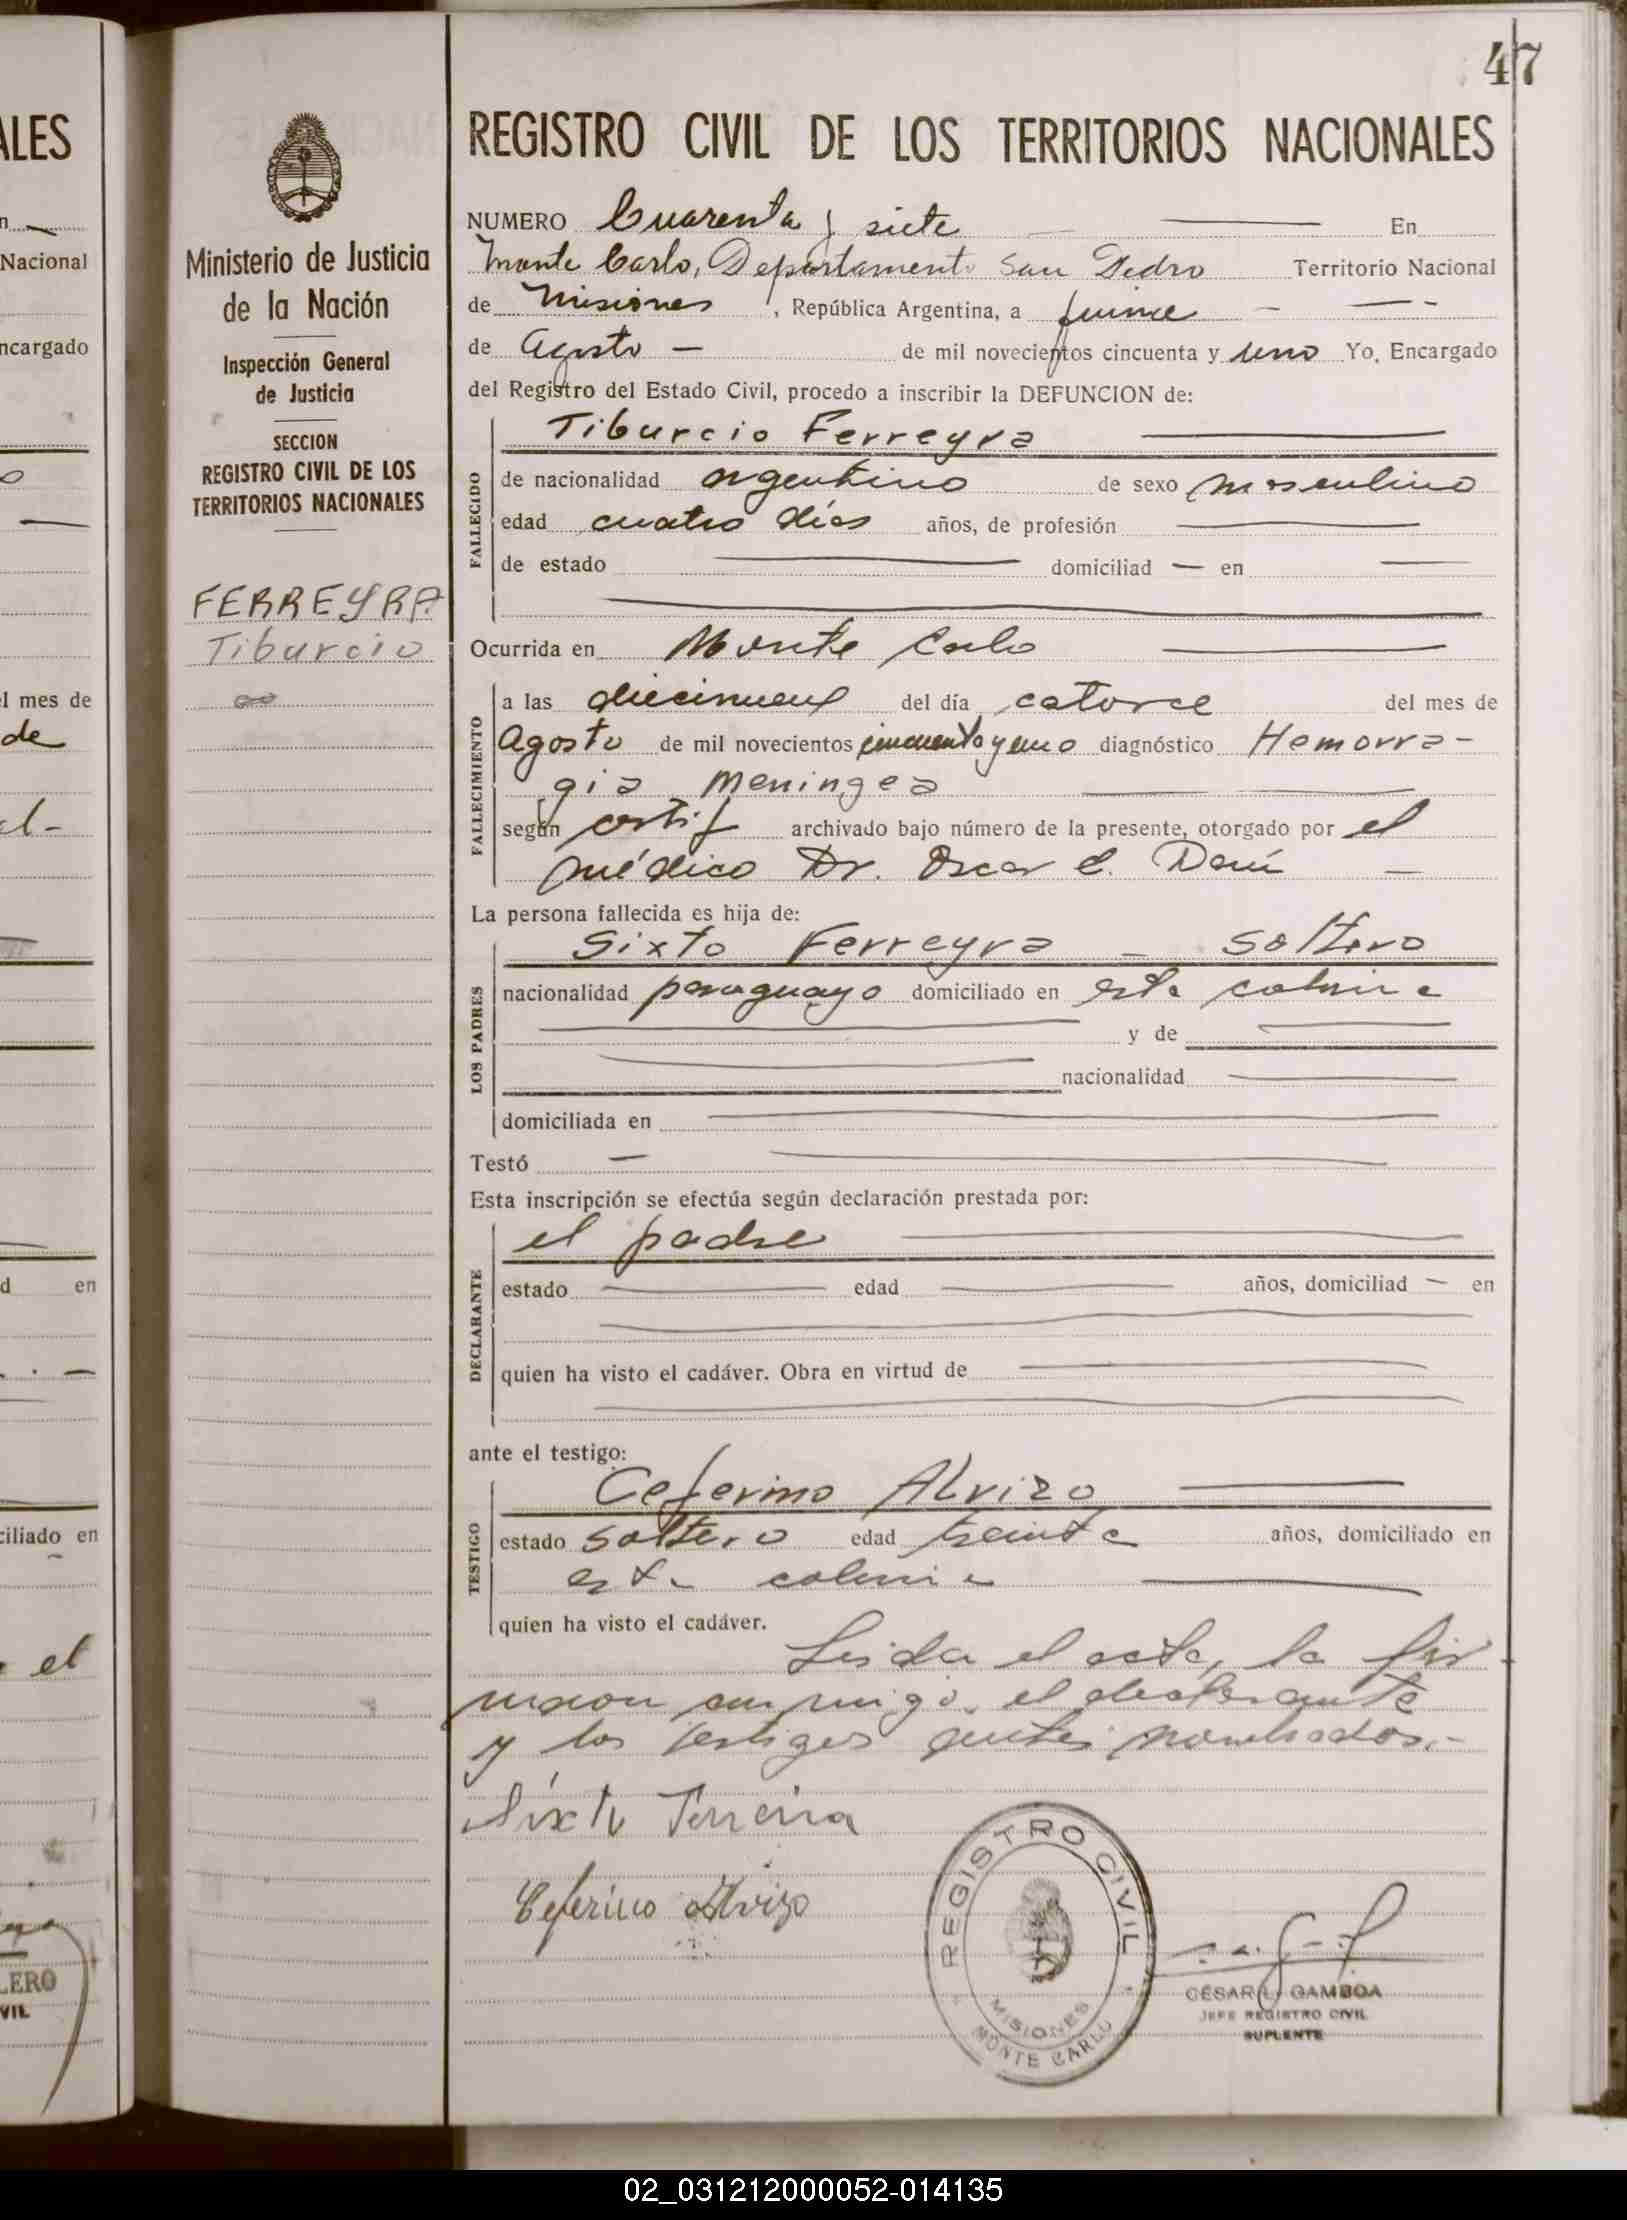 47
REGISTRO CIVIL DE LOS TERRITORIOS NACIONALES
Ministerio de Justicia
de la Nación
Inspección General
de Justicia
SECCION
REGISTRO CIVIL DE LOS
TERRITORIOS NACIONALES
FERREYRA
Tiburcio
NUMERO Cuarenta y siete En
Monte Carlo, Departamento San Pedro Territorio Nacional
de Misiones, República Argentina, a quince
de Agosto — de mil novecientos cincuenta y uno Yo, Encargado
del Registro del Estado Civil, procedo a inscribir la DEFUNCION de:
FALLECIDO
Tiburcio Ferreyra
de nacionalidad argentino de sexo masculino
edad cuatro días años, de profesión —
de estado — domiciliad — en —
Ocurrida en Monte Carlo
FALLECIMIENTO
a las diecinueve del día catorce del mes de
Agosto de mil novecientos cincuenta y uno diagnóstico Hemorra-
gia Meningea
según certif archivado bajo número de la presente, otorgado por el
médico Dr. Oscar E.
La persona fallecida es hija de:
LOS PADRES
Sixto Ferreyra — soltero
nacionalidad paraguayo domiciliado en esta colonia
— y de —
— nacionalidad —
domiciliada en —
Testó —
Esta inscripción se efectúa según declaración prestada por:
DECLARANTE
el padre
estado — edad — años, domiciliad — en
quien ha visto el cadáver. Obra en virtud de —
ante el testigo:
TESTIGO
Ceferino Alvizo
estado soltero edad treinta años, domiciliado en
esta colonia
quien ha visto el cadáver.
Leida el acta, la fir
maron conmigo, el declarante
y los testigos antes nombrados.-
Sixto Ferreira
Ceferino Alvizo
REGISTRO CIVIL
MISIONES
MONTE CARLO
CÉSAR L. GAMBOA
JEFE REGISTRO CIVIL
SUPLENTE
ALES
Nacional
ncargado
el mes de
de
al-
d en
ciliado en
el
LERO
VIL
02_031212000052-014135